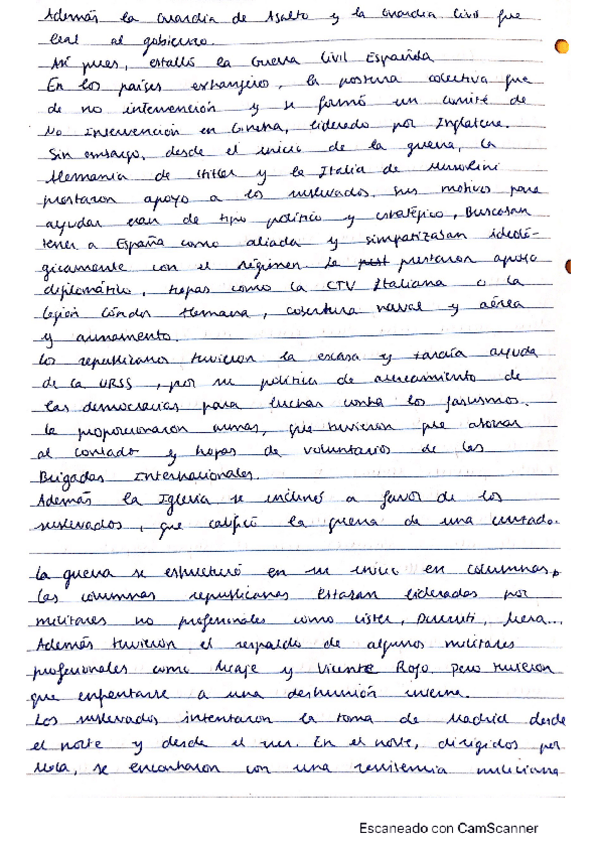 Además la Guardia de Asalto y la Guardia Civil fue
leal al gobierno.
Así pues, estalló la Guerra Civil Española
En los países extranjeros, la postura colectiva fue
de no intervención y se formó un comité de
No Intervención en Londres, liderado por Inglaterra.
Sin embargo, desde el inicio de la guerra, la
Alemania de Hitler y la Italia de Mussolini
prestaron apoyo a los sublevados. Sus motivos para
ayudar eran de tipo político y estratégico, Buscaban
tener a España como aliada y simpatizaban ideoló-
gicamente con el régimen. Le prestaron apoyo
diplomático, tropas como la CTV Italiana o la
legión Cóndor Alemana, cobertura naval y aérea
y armamento.
Los republicanos tuvieron la escasa y tardía ayuda
de la URSS, por su política de acercamiento de
las democracias para luchar contra los fascismos.
Le proporcionaron armas, que tuvieron que abonar
al contado y tropas de voluntarios de las
Brigadas Internacionales.
Además la Iglesia se inclinó a favor de los
sublevados, que calificó la guerra de una cruzada.
La guerra se estructuró en su inicio en columnas,
Las columnas republicanas estaban lideradas por
militares no profesionales como Líster, Durruti, Mera...
Además tuvieron el respaldo de algunos militares
profesionales como Miaje y Vicente Rojo. Pero tuvieron
que enfrentarse a una desunión interna.
Los sublevados intentaron la toma de Madrid desde
el norte y desde el sur. En el norte, dirigidos por
Mola, se encontraron con una resistencia miliciana
Escaneado con CamScanner